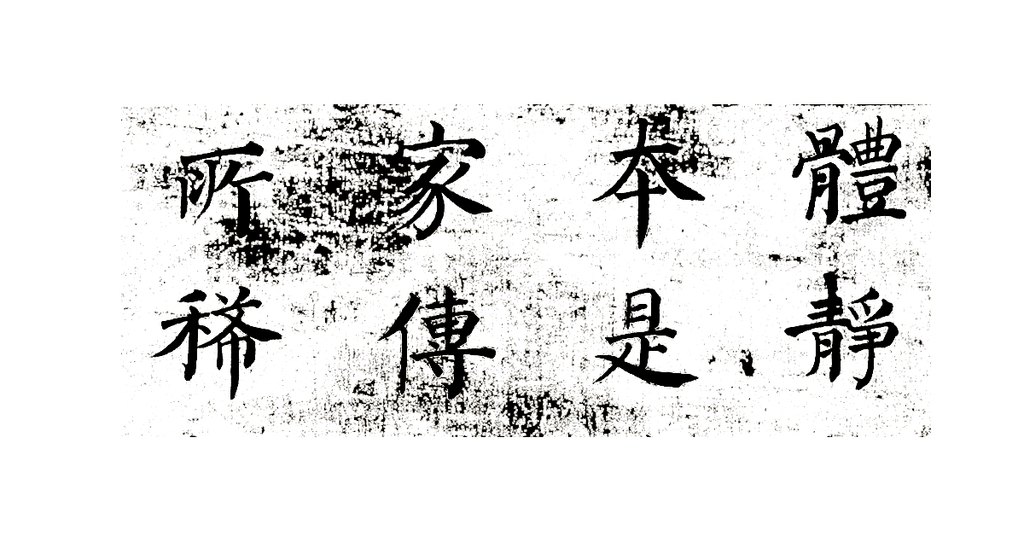 體靜
本是
家傳
所稀